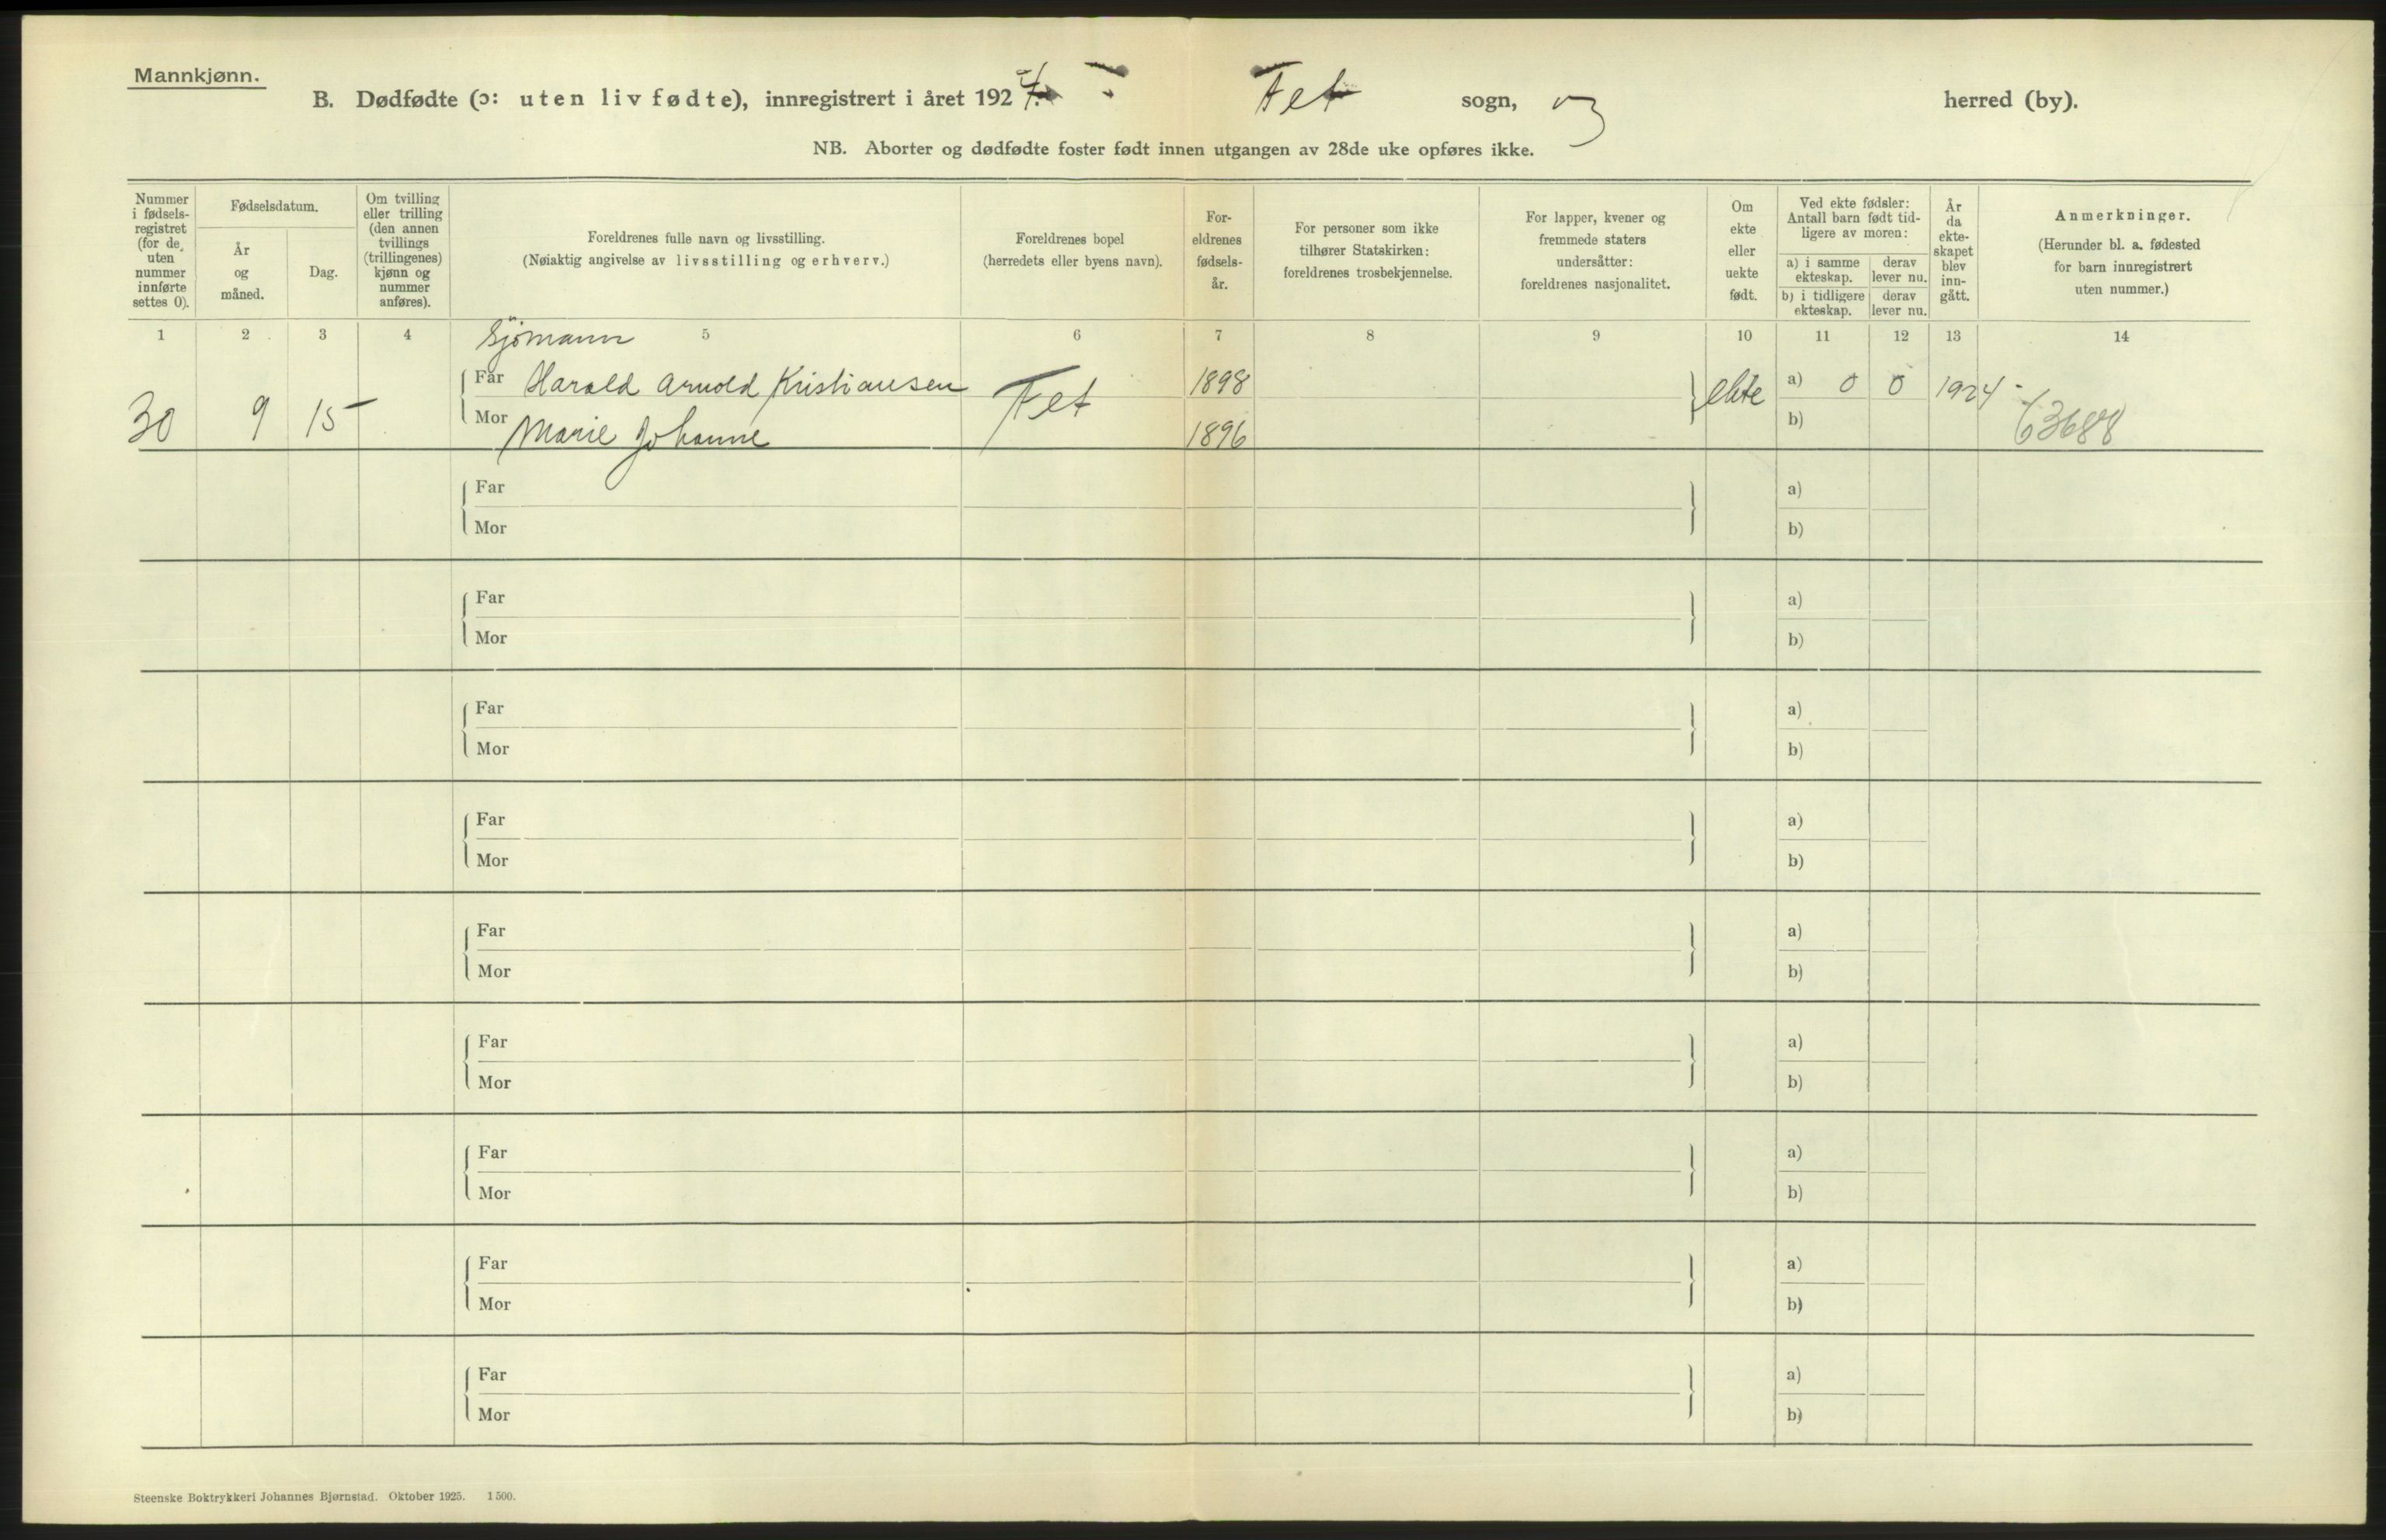 Mannkjønn.
B. Dødfødte (ɔ: uten liv fødte), innregistrert i året 1924. Fet sogn, og herred (by).
NB. Aborter og dødfødte foster født innen utgangen av 28de uke opføres ikke.
Nummer i fødsels-registret (for de uten nummer innførte settes 0).
Fødselsdatum.
År og måned.
Dag.
Om tvilling eller trilling (den annen tvillings (trillingenes) kjønn og nummer anføres).
Foreldrenes fulle navn og livsstilling.
(Nøiaktig angivelse av livsstilling og erhverv.)
Foreldrenes bopel
(herredets eller byens navn).
For-eldrenes fødsels-år.
For personer som ikke tilhører Statskirken: foreldrenes trosbekjennelse.
For lapper, kvener og fremmede staters undersåtter: foreldrenes nasjonalitet.
Om ekte eller uekte født.
Ved ekte fødsler: Antall barn født tid-ligere av moren:
a) i samme ekteskap.
derav lever nu.
b) i tidligere ekteskap.
derav lever nu.
År da ekte-skapet blev inn-gått.
Anmerkninger.
(Herunder bl. a. fødested for barn innregistrert uten nummer.)
1 2 3 4 5 6 7 8 9 10 11 12 13 14
Sjømann
Far Harald Arnold Kristiansen 1898 a) 0 0 1924
30 9 15 Fet ekte
Mor Marie Johanne 1896 b) 63688
Far a)
Mor b)
Far a)
Mor b)
Far a)
Mor b)
Far a)
Mor b)
Far a)
Mor b)
Far a)
Mor b)
Far a)
Mor b)
Far a)
Mor b)
Far a)
Mor b)
Steenske Boktrykkeri Johannes Bjørnstad. Oktober 1925. 1500.